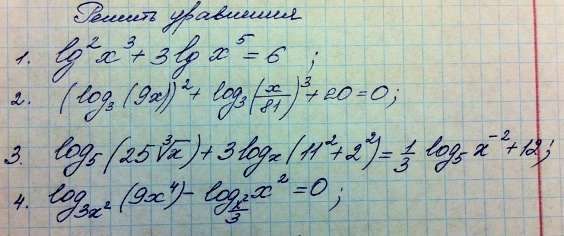 Решить уравнения
1. lg²x³ + 3lg x⁵ = 6 ;
2. (log₃(9x))² + log₃(x/81)³ + 20 = 0;
3. log₅(25∛x) + 3logₓ(11² + 2²) = 1/3 log₅x⁻² + 12;
4. log_{3x²}(9x⁴) - log_{x²/3}x² = 0 ;